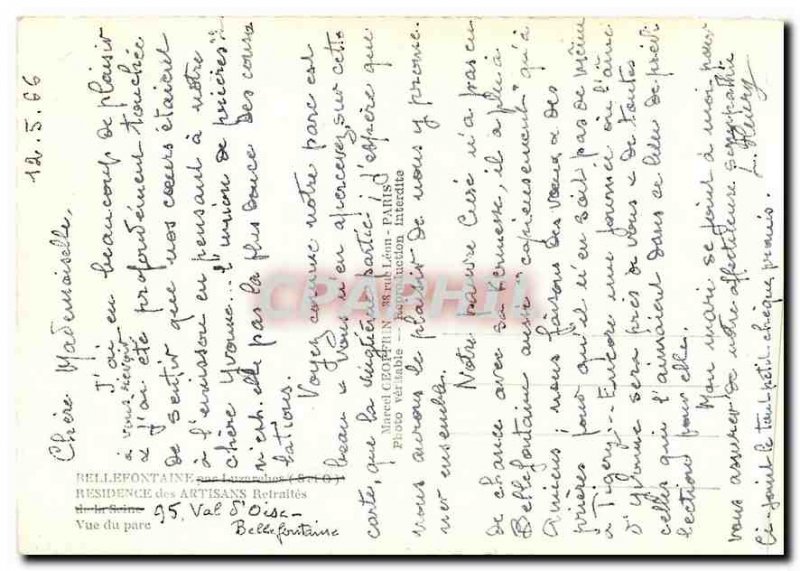 12.5.66
Chère Mademoiselle,
J'ai eu beaucoup de plaisir
à vous revoir
& j'ai été profondément touchée
de sentir que nos cœurs étaient
à l'unisson en pensant à notre
chère Yvonne... l'"union de prières"
n'est-elle pas la plus douce des conso
lations.
Voyez comme notre parc est
beau & vous n'en apercevez, sur cette
carte, que la vingtième partie ; j'espère que
nous aurons le plaisir de nous y prome-
ner ensemble.
Notre pauvre Curé n'a pas eu
de chance avec sa kermesse, il a plu à
Bellefontaine aussi "copieusement" qu'à
Amiens ; nous faisons des vœux & des
prières pour qu'il n'en soit pas de même
à Tigery... Encore une journée où l'âme
d'Yvonne sera près de vous & de toutes
celles qui l'aimaient dans ce lieu de prédi
lection pour elle.
Mon mari se joint à moi pour
vous assurer de notre affectueuse sympathie
L. Fleury
Ci-joint le tout petit chèque promis.
Marcel GEOFFRIN, 38 rue Léon - PARIS
Photo véritable — Reproduction Interdite
CPAPHIL
BELLEFONTAINE par Luzarches (S-et-O)
RESIDENCE des ARTISANS Retraités
de la Seine 95. Val d'Oise -
Vue du parc Bellefontaine